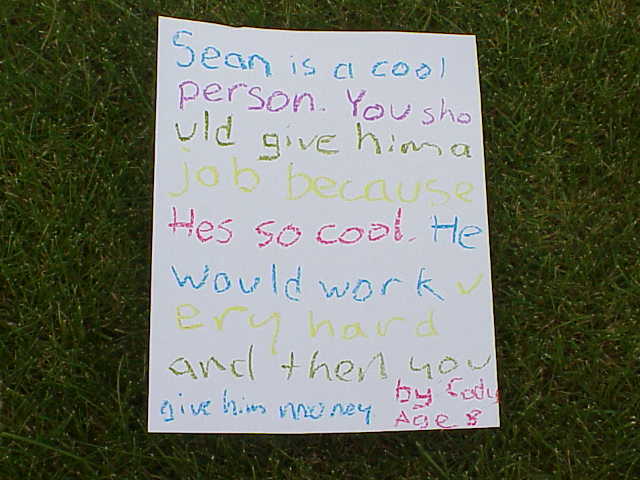 Sean is a cool
person. You sho
uld give him a
job because
Hes so cool. He
would work v
ery hard
and then you
give him money
by Cody
Age 8